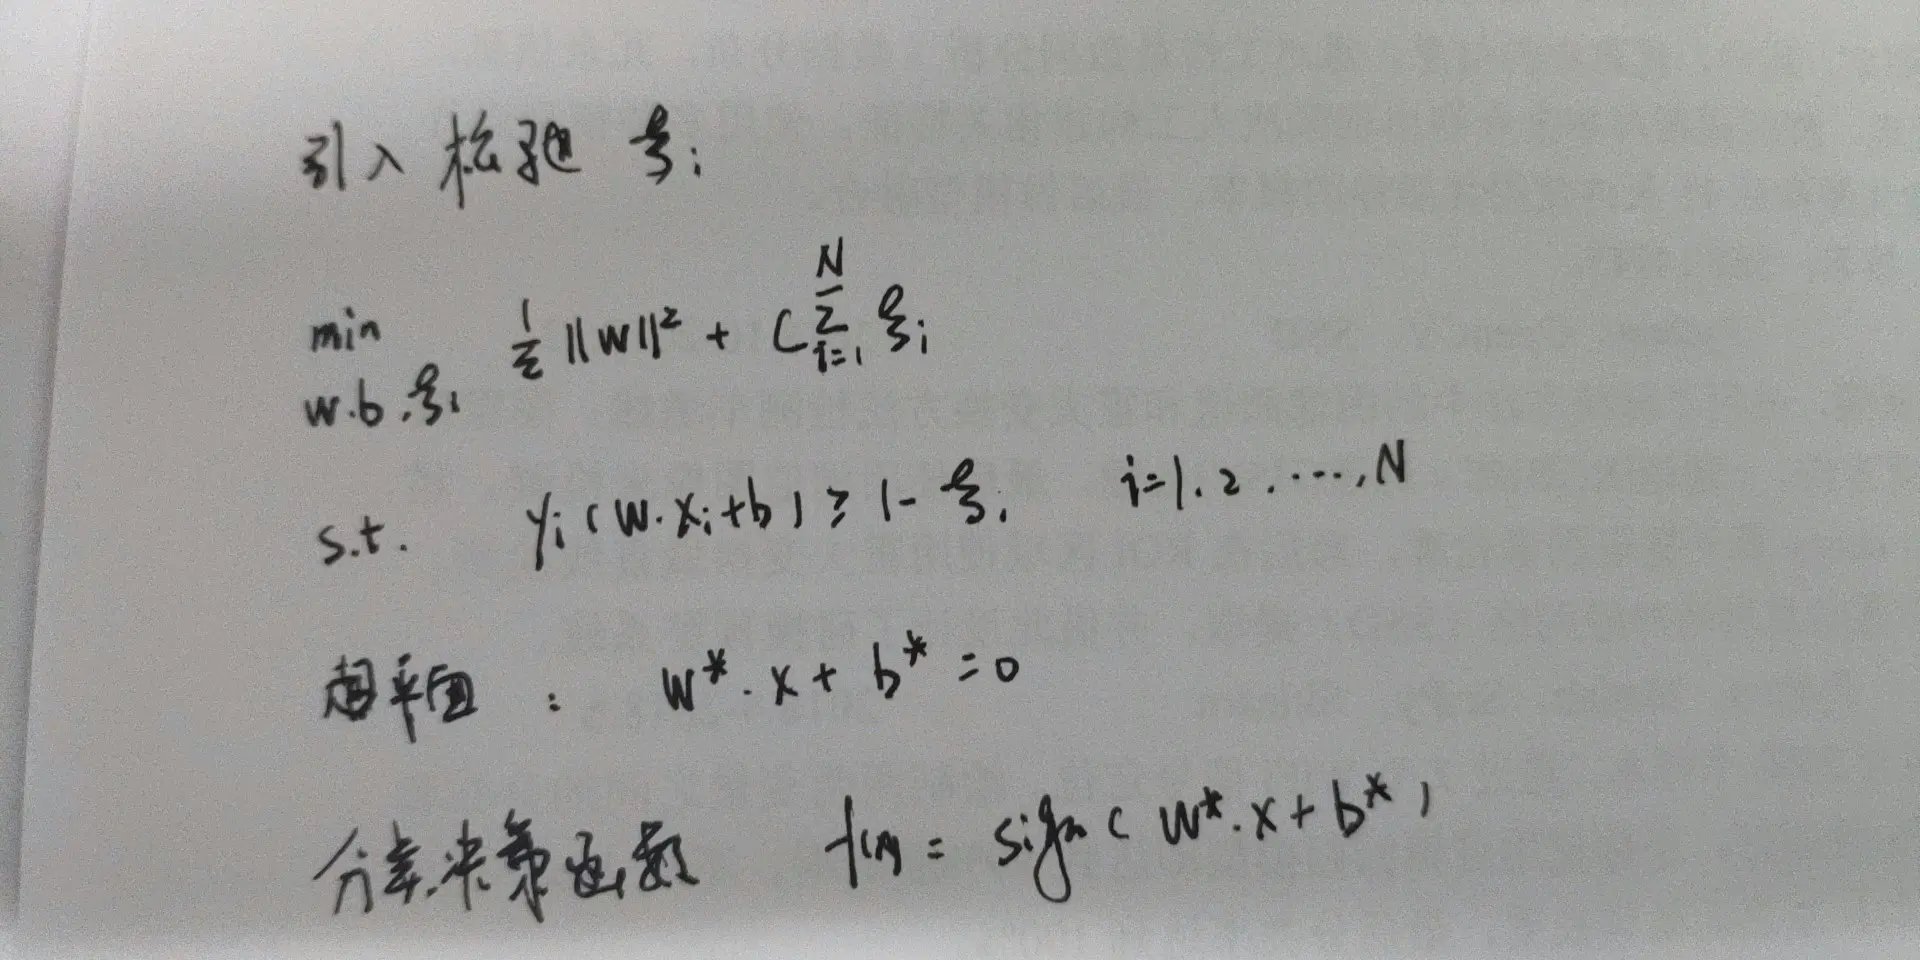 引入松弛 ξi
min w.b.ξi 1/2 ||w||² + C Σ_{i=1}^{N} ξi
s.t. yi(w·xi+b) ≥ 1-ξi i=1.2.…,N
超平面: w*·x+b*=0
分类决策函数 f(x) = sign(w*·x+b*)